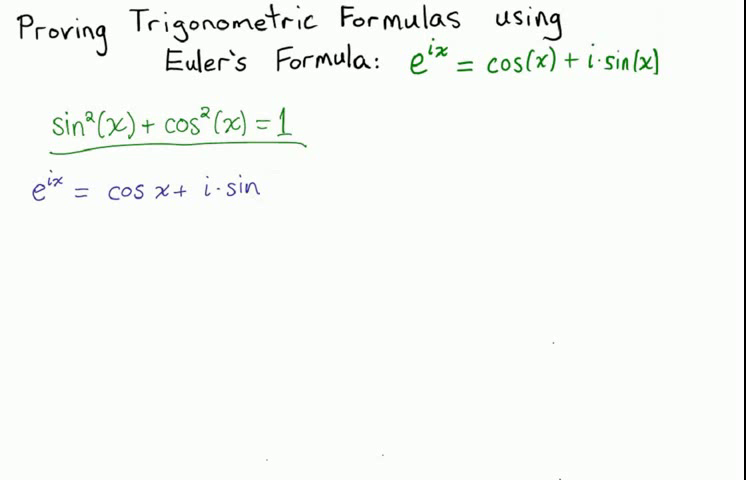 Proving Trigonometric Formulas using
Euler's Formula: e^{ix} = cos(x) + i·sin(x)
sin²(x) + cos²(x) = 1
e^{ix} = cos x + i·sin